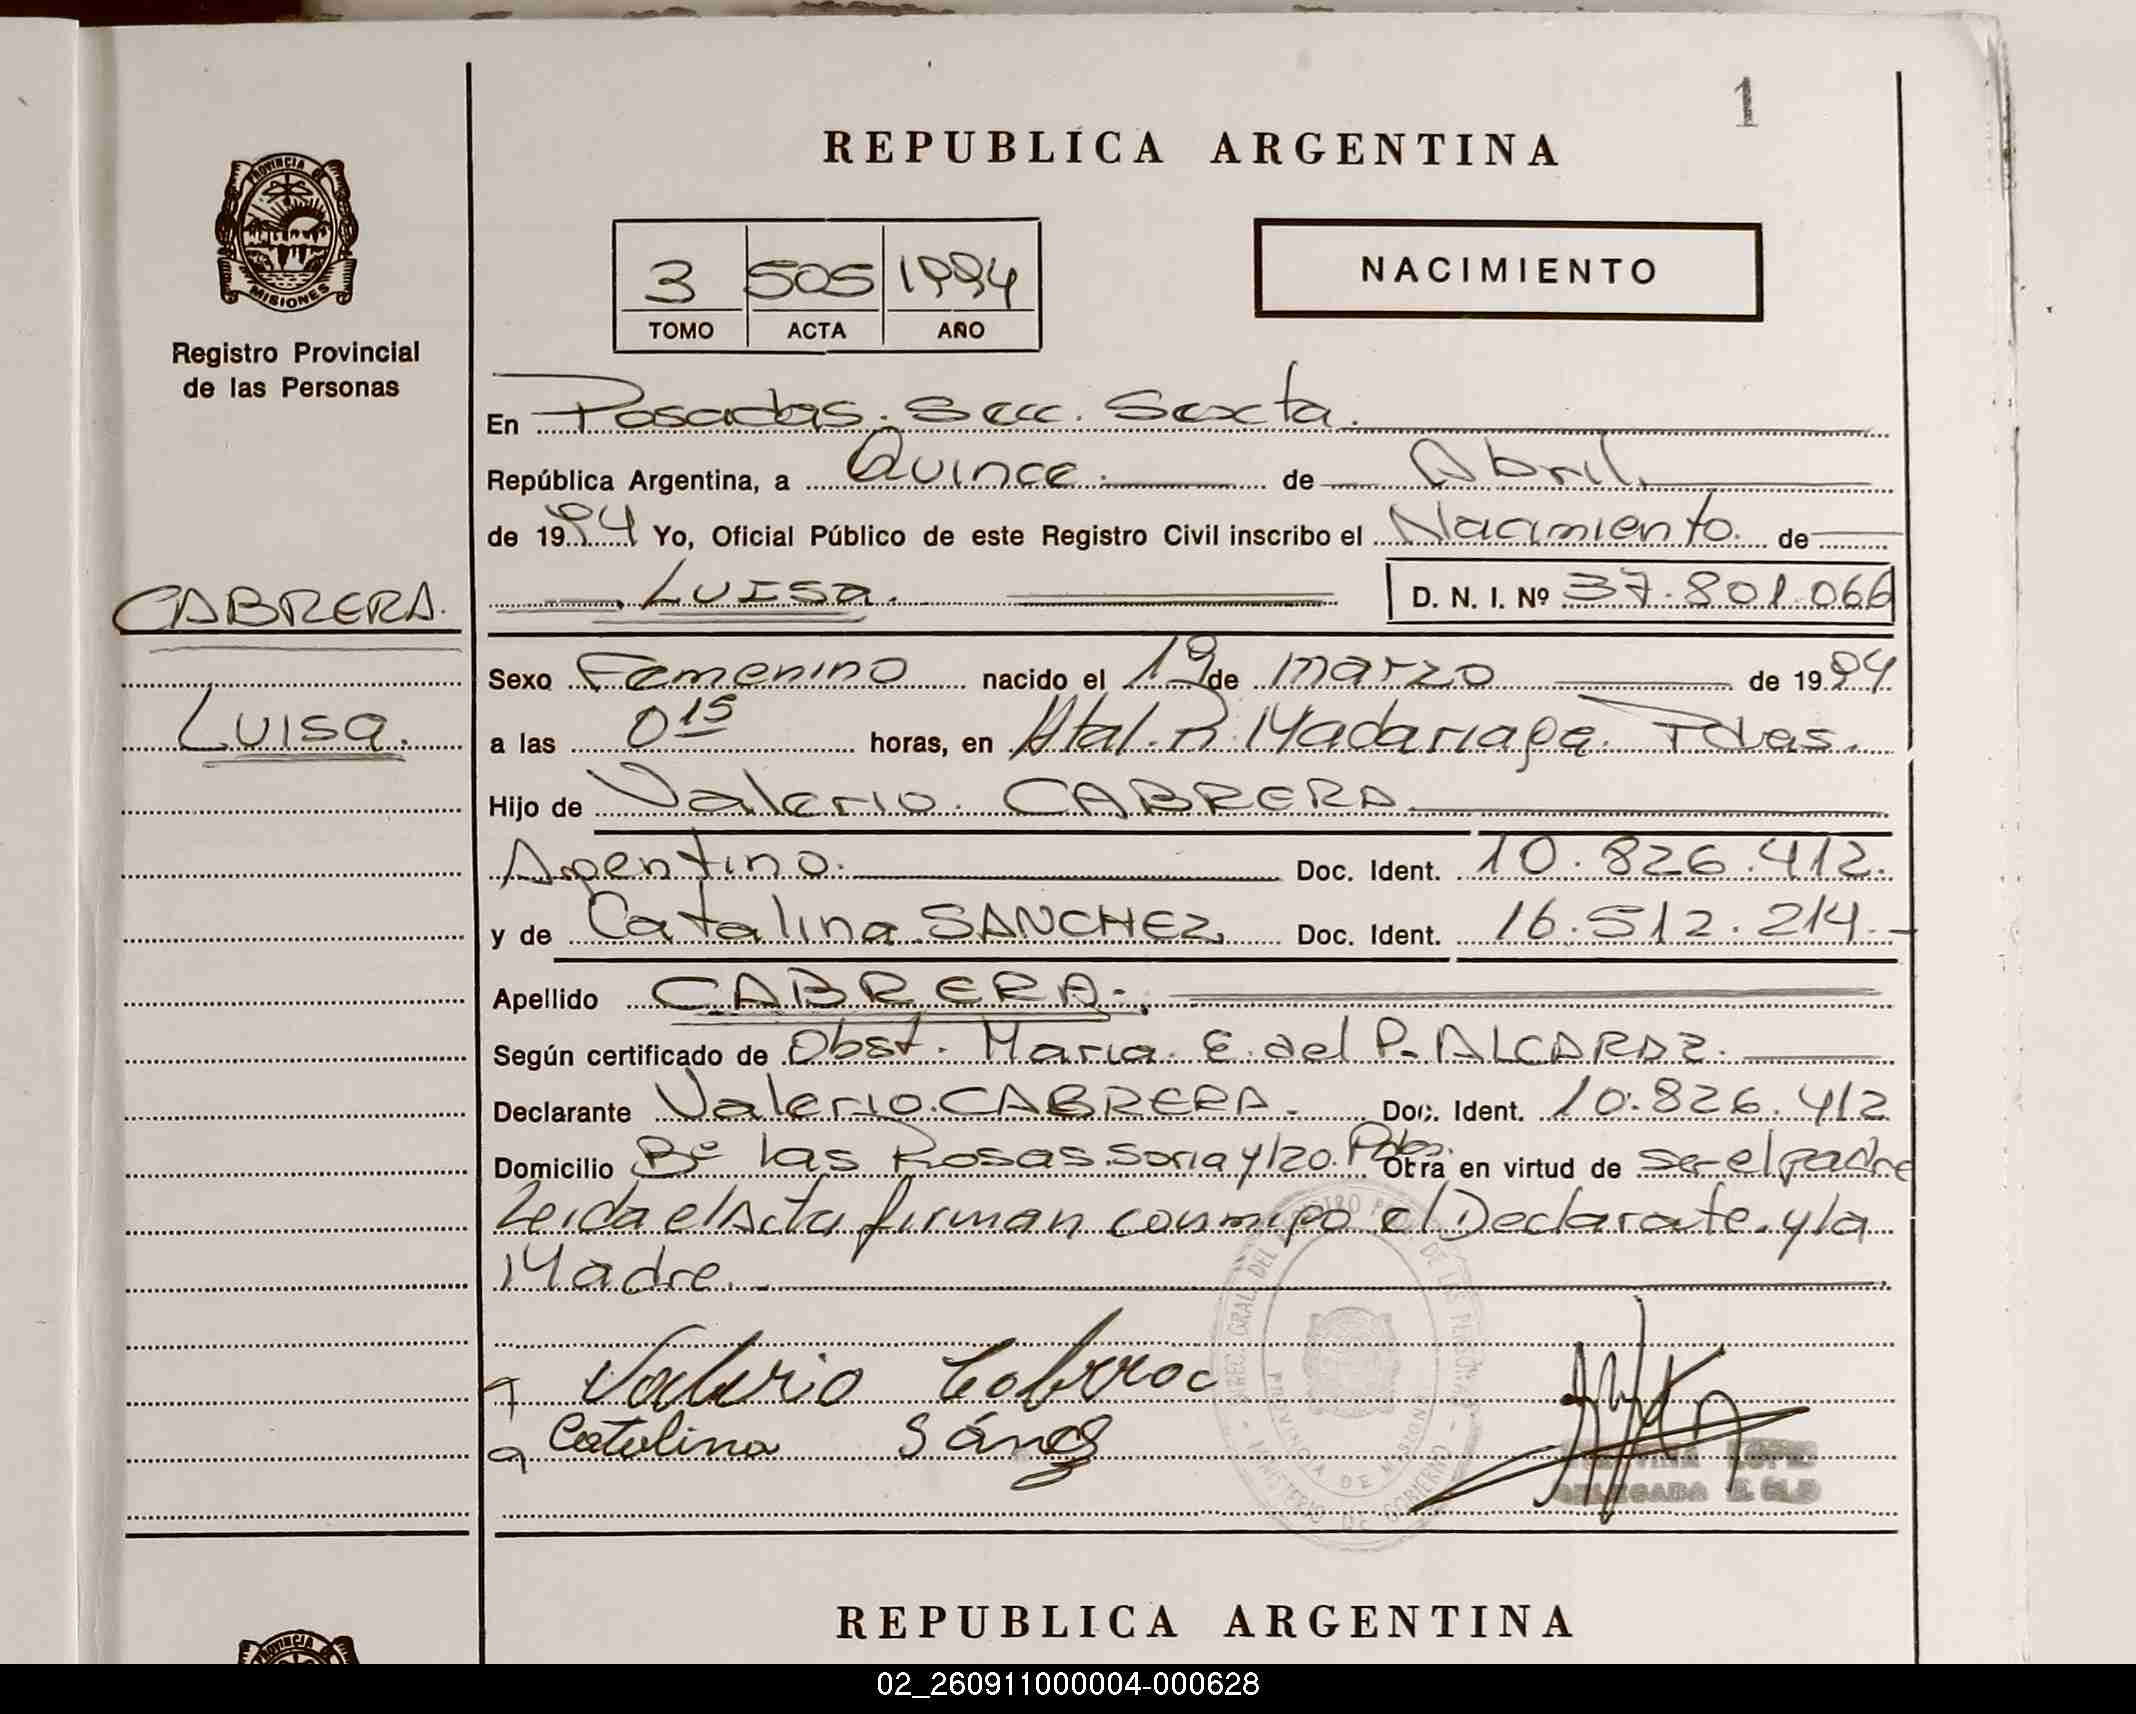 1
REPUBLICA ARGENTINA
PROVINCIA DE
MISIONES
Registro Provincial
de las Personas
3 505 1994
TOMO ACTA AÑO
NACIMIENTO
En Posadas. Secc. Sexta.
República Argentina, a Quince. de Abril.
de 1994 Yo, Oficial Público de este Registro Civil inscribo el Nacimiento. de
CABRERA.
Luisa. D. N. I. Nº 37.801.066
Sexo Femenino nacido el 19 de marzo de 1994
Luisa.
a las 0 15 horas, en Htal. R. Madariaga. Pdas.
Hijo de Valerio. CABRERA
Argentino. Doc. Ident. 10.826.412.
y de Catalina SANCHEZ, Doc. Ident. 16.512.214.-
Apellido CABRERA.-
Según certificado de Obst. Maria E. del P. ALCARAZ.
Declarante Valerio. CABRERA. Doc. Ident. 10.826.412
Domicilio Bº las Rosas. Soria y 120. Pdas. Obra en virtud de ser el padre
Leida el Acta firman conmigo el Declarate. y la
Madre.
Valerio Cabrera
Catalina
MINISTERIO DE GOBIERNO
PROVINCIA DE MISIONES
DELEGADA
REPUBLICA ARGENTINA
PROVINCIA
02_260911000004-000628